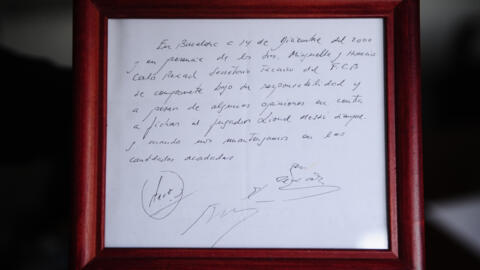 En Barcelona a 14 de Diciembre del 2000
y en presencia de los Sres. Minguella y Horacio
Carlo Rexach Secretario Técnico del F.C.B
se compromete bajo su responsabilidad y
a pesar de algunas opiniones en contra
a fichar al jugador Lionel Messi siempre
y cuando nos mantengamos en las
cantidades acordadas